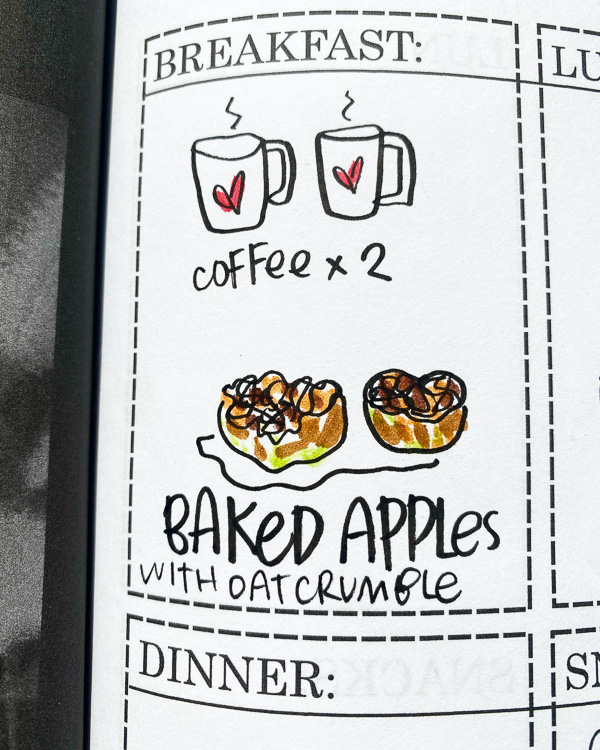 BREAKFAST:
LU
coffee x 2
BAKED APPLes
WITH OAT CRUMBLE
DINNER:
SN